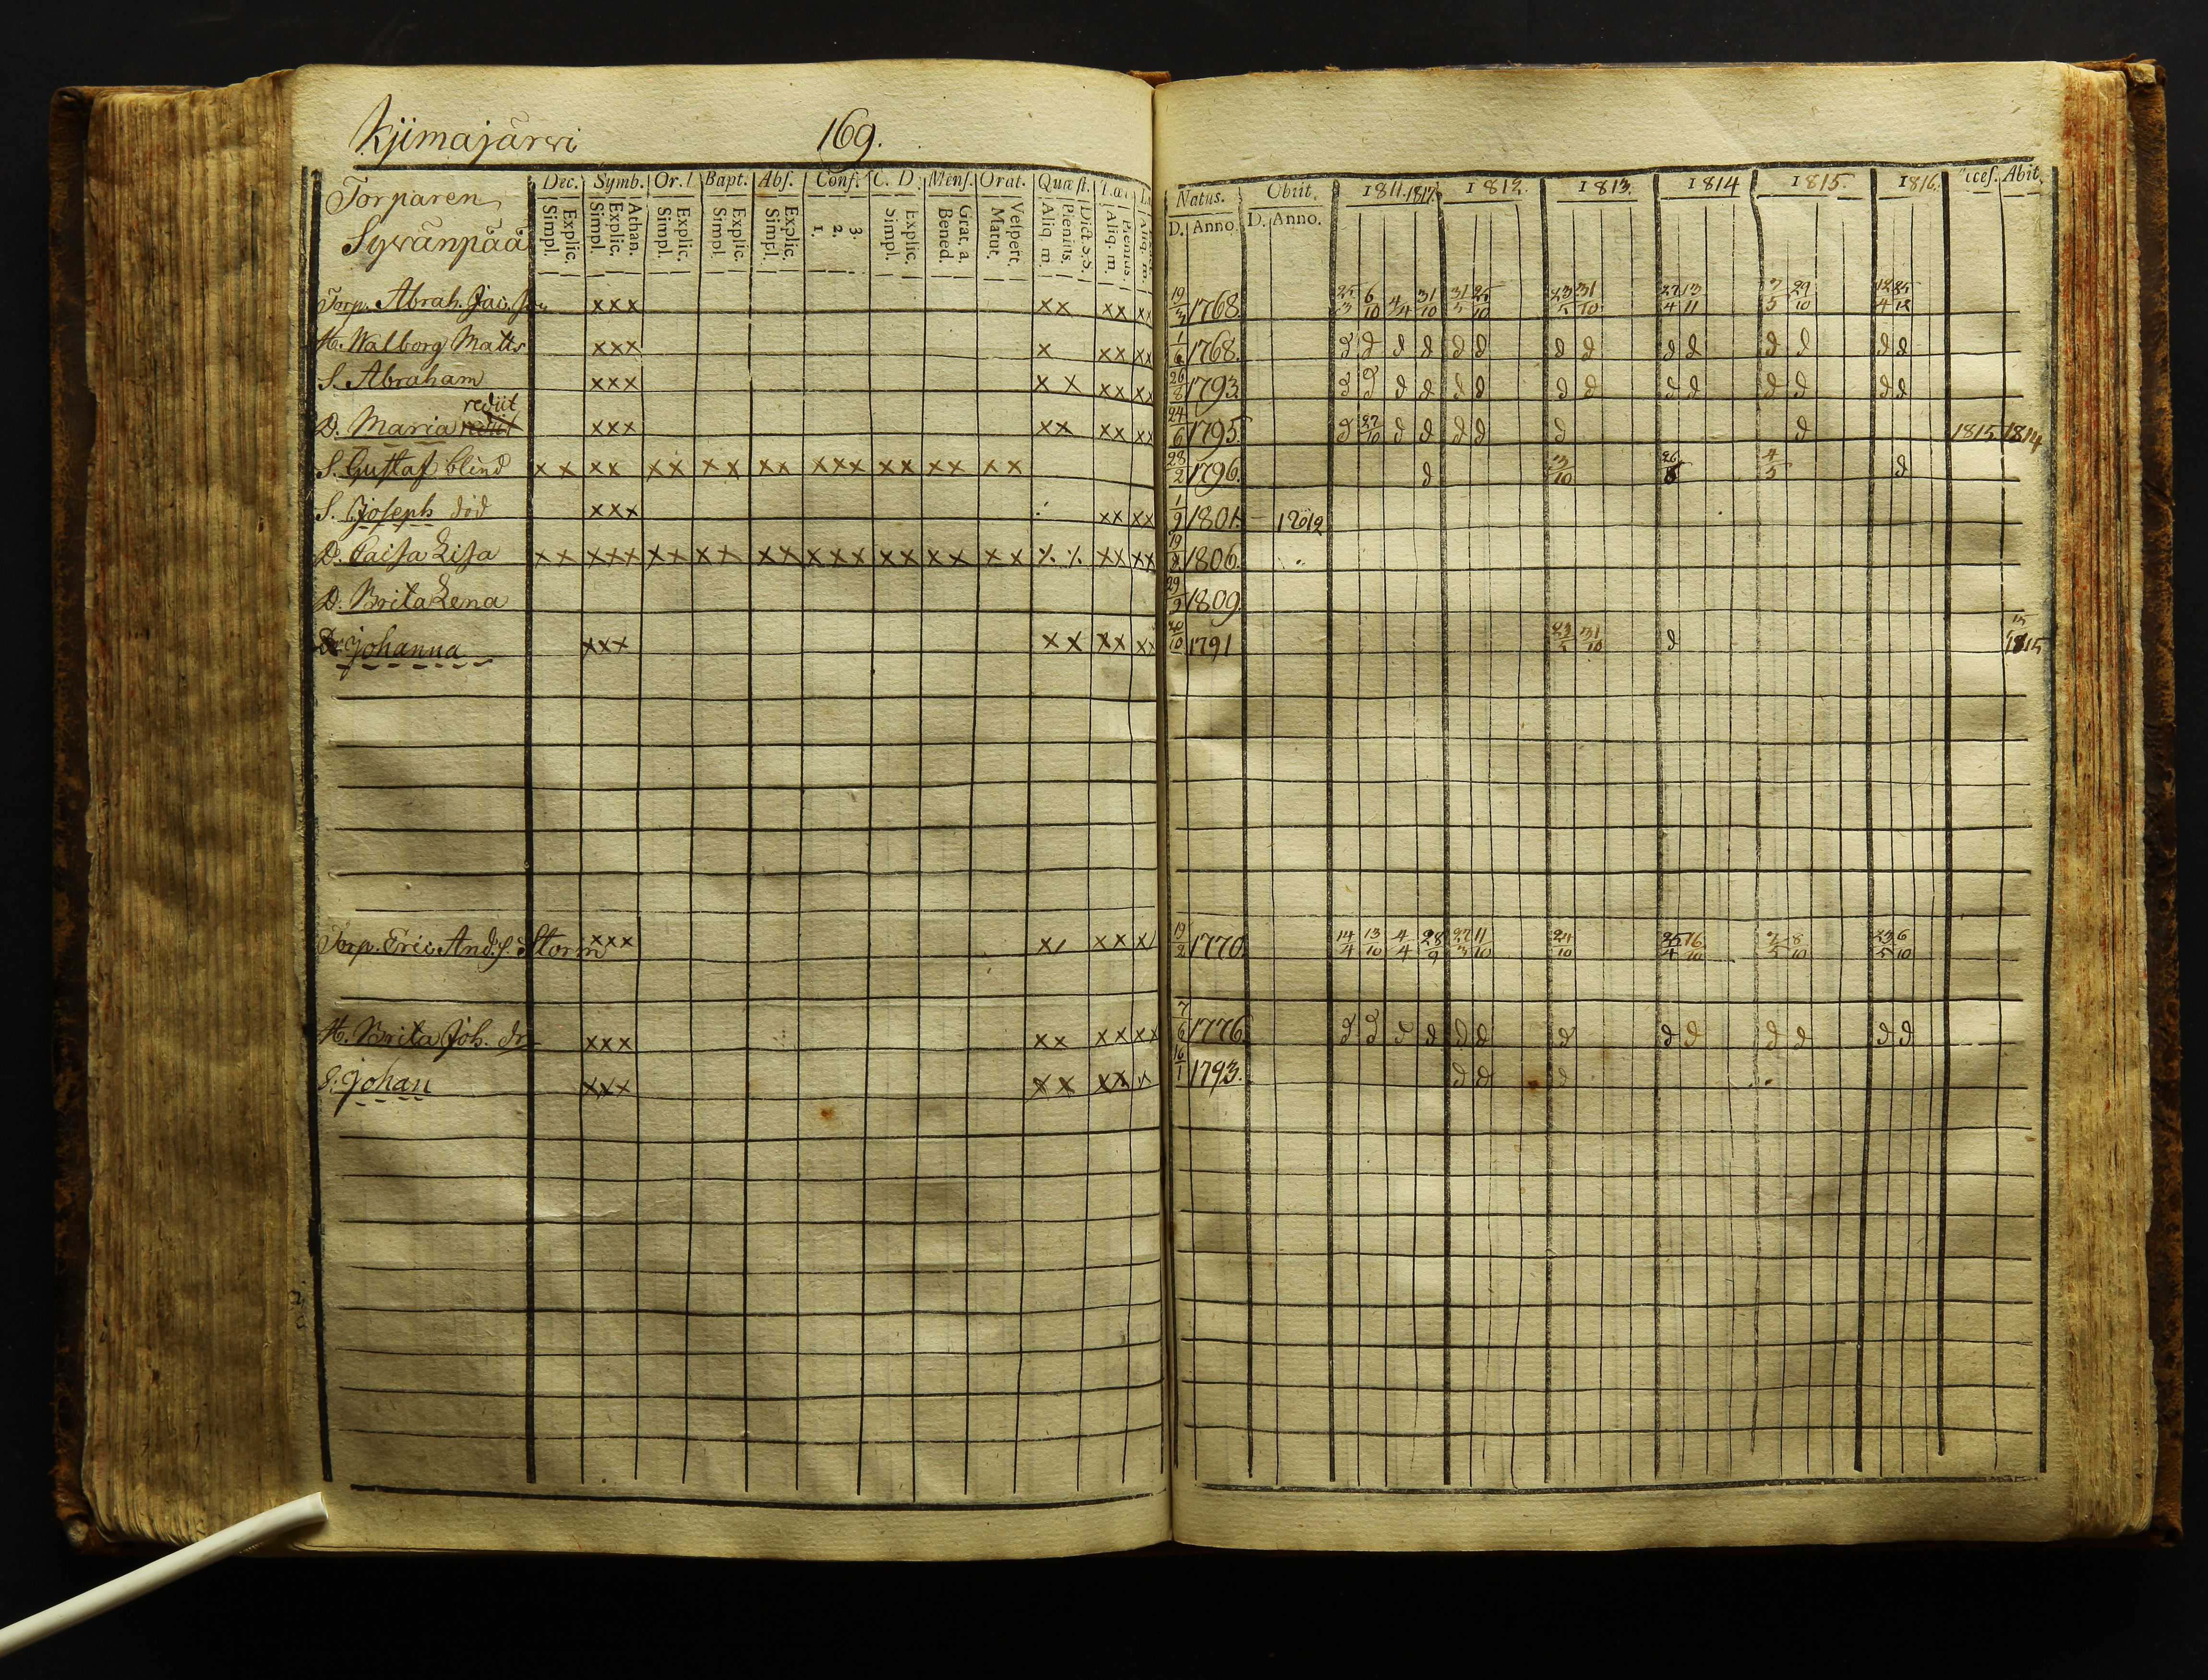 Kjimajärvi 169.
Torparen Dec. Symb. Or. Bapt. Abs. Conf. C. D. Mens. Orat. Quæst. Natus. Obiit. 1811. 1817. 1812. 1813. 1814 1815. 1816. Abit.
Syvänpää Simpl. Explic. Simpl. Explic. Athan. Simpl. Explic. Simpl. Explic. Simpl. Explic. 1. 2. 3. Simpl. Explic. Bened. Grat. a. Matut. Vespert. Aliq. m. Plenius. Dict. S.S. Aliq. m. Plenius. D. Anno. D. Anno.
Torp. Abrah. Jac. xxx xx xx xx 19/3 1768. 25/3 6/10 4/4 31/10 25/10 31/10 27/4 13/11 29/10
H. Walborg Matts xxx x xx xx 1768. d d d d d d d d d d d d d d
S. Abraham xxx x x xx xx 26/8 1793. d d d d d d d d d d d d d d
rediit
D. Maria xxx xx xx xx 24/6 1795. d 27/10 d d d d d d 1815 1814
S. Gustaf blind x x xx xx xx xx xxx xx xx xx 28/2 1796. d 4/5 d
S. Joseph död xxx xx xx 1/9 1801.
D. Caisa Lisa x x xxx xx xx xx xxx xx xx xx xx xx 1806.
D. Brita Lena 29/9 1809.
Johanna xxx xx xx xx 1791 31/10 d 1815
Torp. Eric And. S. Storm xxx xx xx 19/2 1770. 14/4 13/10 4/4 28/9 27/3 11/10 24/10 25/4 16/10 8/10 23/5 6/10
H. Brita Joh. dr xxx xx xx xx 7/6 1776. d d d d d d d d d d d d d
S. Johan xxx xx xx x 16/1 1793. d d d